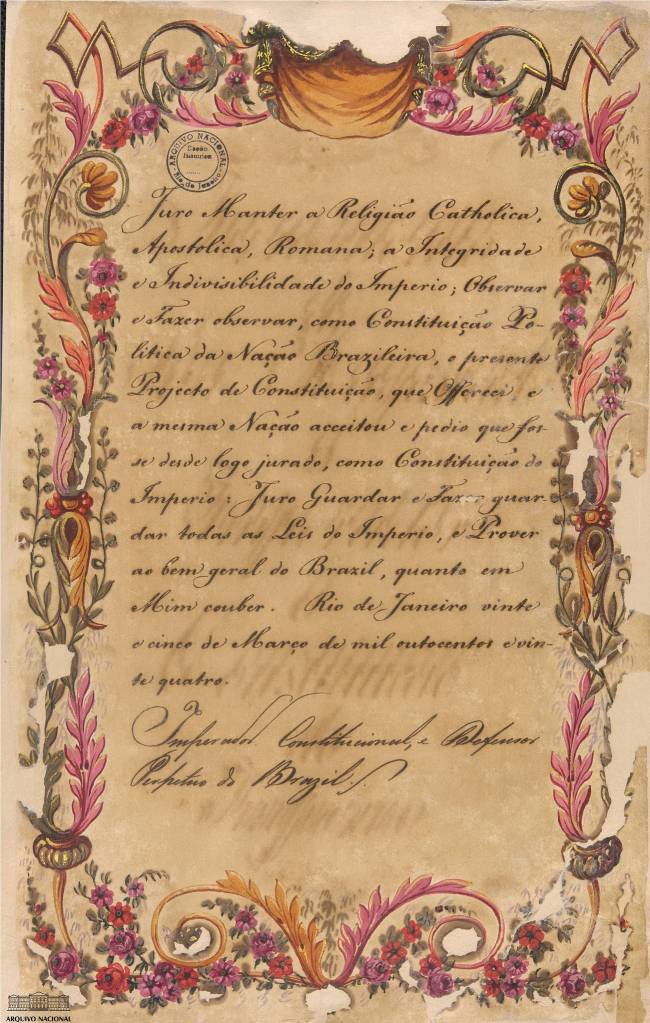 ARQUIVO NACIONAL
Secção
Historica
Rio de Janeiro
Juro Manter a Religião Catholica,
Apostolica, Romana; a Integridade
e Indivisibilidade do Imperio; Observar
e Fazer observar, como Constituição Po-
litica da Nação Brazileira, o presente
Projecto de Constituição, que Offereci, e
a mesma Nação acceitou e pedio que fos-
se desde logo jurado, como Constituição do
Imperio: Juro Guardar e Fazer guar-
dar todas as Leis do Imperio, e Prover
ao bem geral do Brazil, quanto em
Mim couber. Rio de Janeiro vinte
e cinco de Março de mil outocentos e vin-
te quatro.
Imperador Constitucional, e Defensor
Perpetuo do Brazil.
ARQUIVO NACIONAL